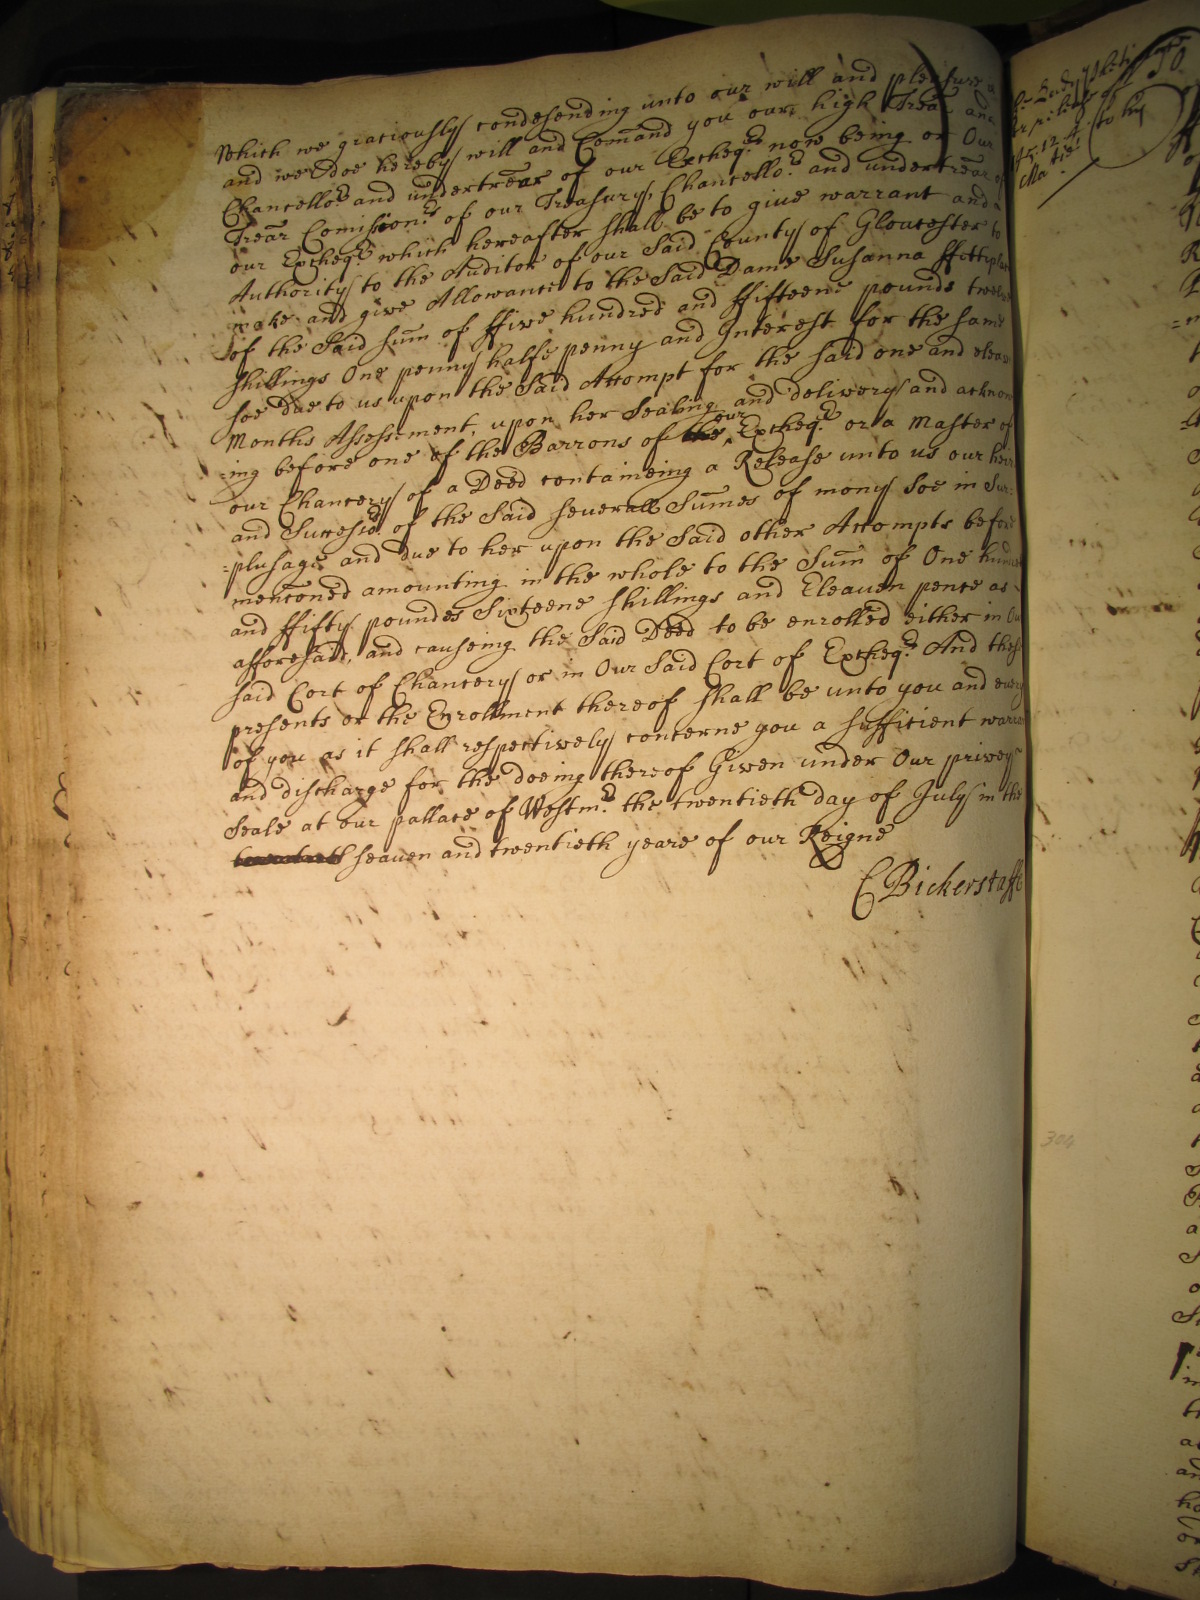 Which we graciously condesending unto our will and pleasure is
and wee doe hereby will and Comand you our high Trear and
Chancellor and undertrear of our Excheqr now being or Our
Trear Comissionrs of our Treasury, Chancellor and undertrear of
our Excheqr which hereafter shall be to give warrant and
Authority to the Auditor of our Said County of Gloucester to
make and give Allowance to the Said Dame Susanna ffettiplace
of the Said sum of ffive hundred and ffifteene pounds twelve
shillings One penny halfe penny and Interest for the same
soe due to us upon the Said Accompt for the said one and eleaven
Months Assessment, upon her Sealing and delivery and acknow
=ing before one of the Barrons of the our Excheqr or a Master of
our Chancery of a Deed containeing a Release unto us our heirs
and Successrs of the Said severall Summes of mony soe in Sur=
=plusage and due to her upon the Said other Accompts before
mencòned amounting in the whole to the Sum of One hundred
and ffifty poundes Sixteene shillings and Eleaven pence as
afforesaid, and causeing the Said Deed to be enrolled either in Our
said Cort of Chancery or in Our Said Cort of Excheqr And these
presents or the Enrollment thereof shall be unto you and every
of you as it shall respectively concerne you a sufficient warrant
and discharge for the doeing thereof Given under Our privey
Seale at our pallace of Westmr the twentieth day of July in the
seaven and twentieth yeare of our Reigne
C Bickerstaffe
304